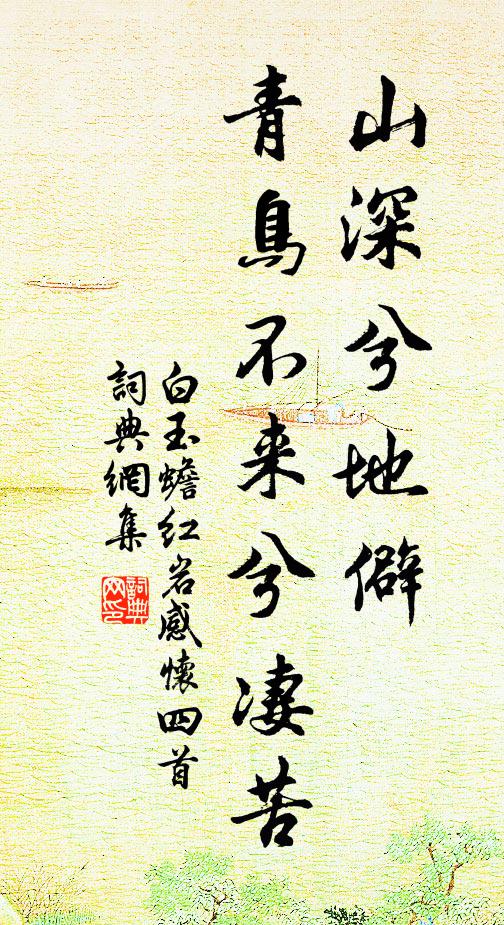 山深兮地僻
青鳥不来兮凄苦
白玉蟾红岩感懷四首
詞典網集
詞典網印